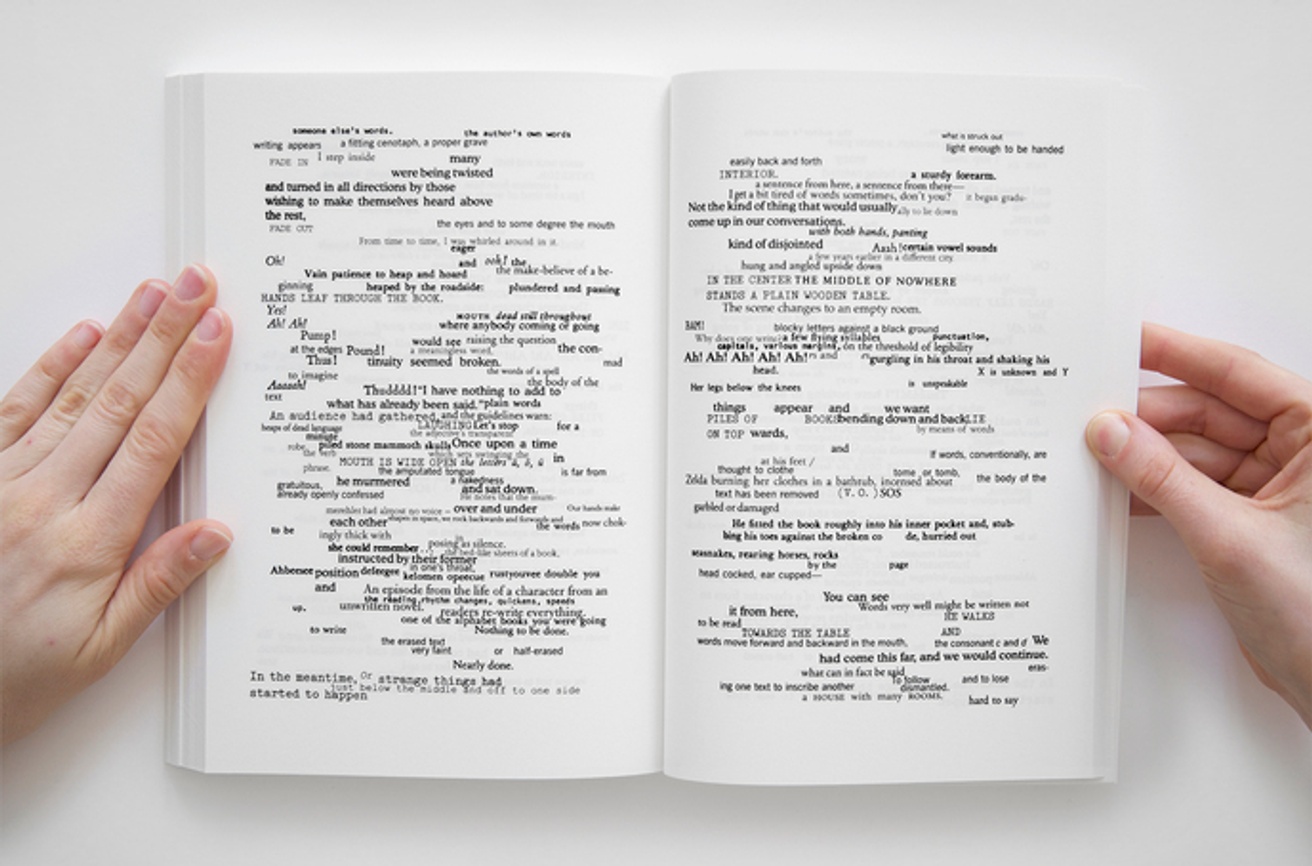 someone else's words. the author's own words
writing appears a fitting cenotaph, a proper grave
FADE IN I step inside many
were being twisted
and turned in all directions by those
wishing to make themselves heard above
the rest,
FADE OUT the eyes and to some degree the mouth
From time to time, I was whirled around in it.
eager
Oh! and ooh! the
Vain patience to heap and hoard the make-believe of a be-
ginning heaped by the roadside: plundered and passing
HANDS LEAF THROUGH THE BOOK.
Yes!
MOUTH dead still throughout
Ah! Ah! where anybody coming or going
Pump! would see raising the question
at the edges Pound! a meaningless word, the con-
Thus! tinuity seemed broken. mad
the words of a spell
to imagine the body of the
Aaaaah! Thudddd! "I have nothing to add to
text
what has already been said." plain words
An audience had gathered, and the guidelines warn:
heaps of dead language LAUGHING Let's stop for a
minute the adjective's transparent
robe, the verb piled stone mammoth skulls Once upon a time
which sets swinging the
MOUTH IS WIDE OPEN the letters in
phrase. the amputated tongue is far from
gratuitous, he murmered a nakedness
already openly confessed and sat down.
He notes that the mum-
merehler had almost no voice – over and under Our hands make
each other shapes in space, we rock backwards and forwards and the words now chok-
to be ingly thick with in
she could remember posing as silence.
the bed-like sheets of a book,
instructed by their former
in one's throat,
Ahbenee position defergee kelomen opeecue rustyouvee double you
and An episode from the life of a character from an
the reading rhythm changes, quickens, speeds
up. unwritten novel. readers re-write everything.
one of the alphabet books you were going
to write Nothing to be done.
the erased text
very faint or half-erased
Nearly done.
In the meantime, or strange things had
just below the middle and off to one side
started to happen
what is struck out
light enough to be handed
easily back and forth
INTERIOR. a sturdy forearm.
a sentence from here, a sentence from there—
I get a bit tired of words sometimes, don't you? it began gradu-
Not the kind of thing that would usually ally to lie down
come up in our conversations.
with both hands, panting
kind of disjointed Aash! certain vowel sounds
a few years earlier in a different city
hung and angled upside down
IN THE CENTER THE MIDDLE OF NOWHERE
STANDS A PLAIN WOODEN TABLE.
The scene changes to an empty room.
BAM! blocky letters against a black ground
Why does one write a few flying syllables punctuation,
capitals, various margins, on the threshold of legibility
Ah! Ah! Ah! Ah! Ah! and gurgling in his throat and shaking his
head. X is unknown and Y
Her legs below the knees is unspeakable
things appear and we want
PILES OF BOOKS bending down and back LIE
ON TOP words, by means of words
and
at his feet / If words, conventionally, are
thought to clothe tome or tomb,
Zelda burning her clothes in a bathtub, incensed about the body of the
text has been removed (V.O.) SOS
garbled or damaged
He fitted the book roughly into his inner pocket and, stub-
bing his toes against the broken co de, hurried out
seasnakes, rearing horses, rocks
by the page
head cocked, ear cupped—
You can see
it from here, Words very well might be written not
to be read HE WALKS
TOWARDS THE TABLE AND
words move forward and backward in the mouth, the consonant c and d We
had come this far, and we would continue.
what can in fact be said eras-
To follow and to lose
ing one text to inscribe another dismantled.
a HOUSE with many ROOMS. hard to say